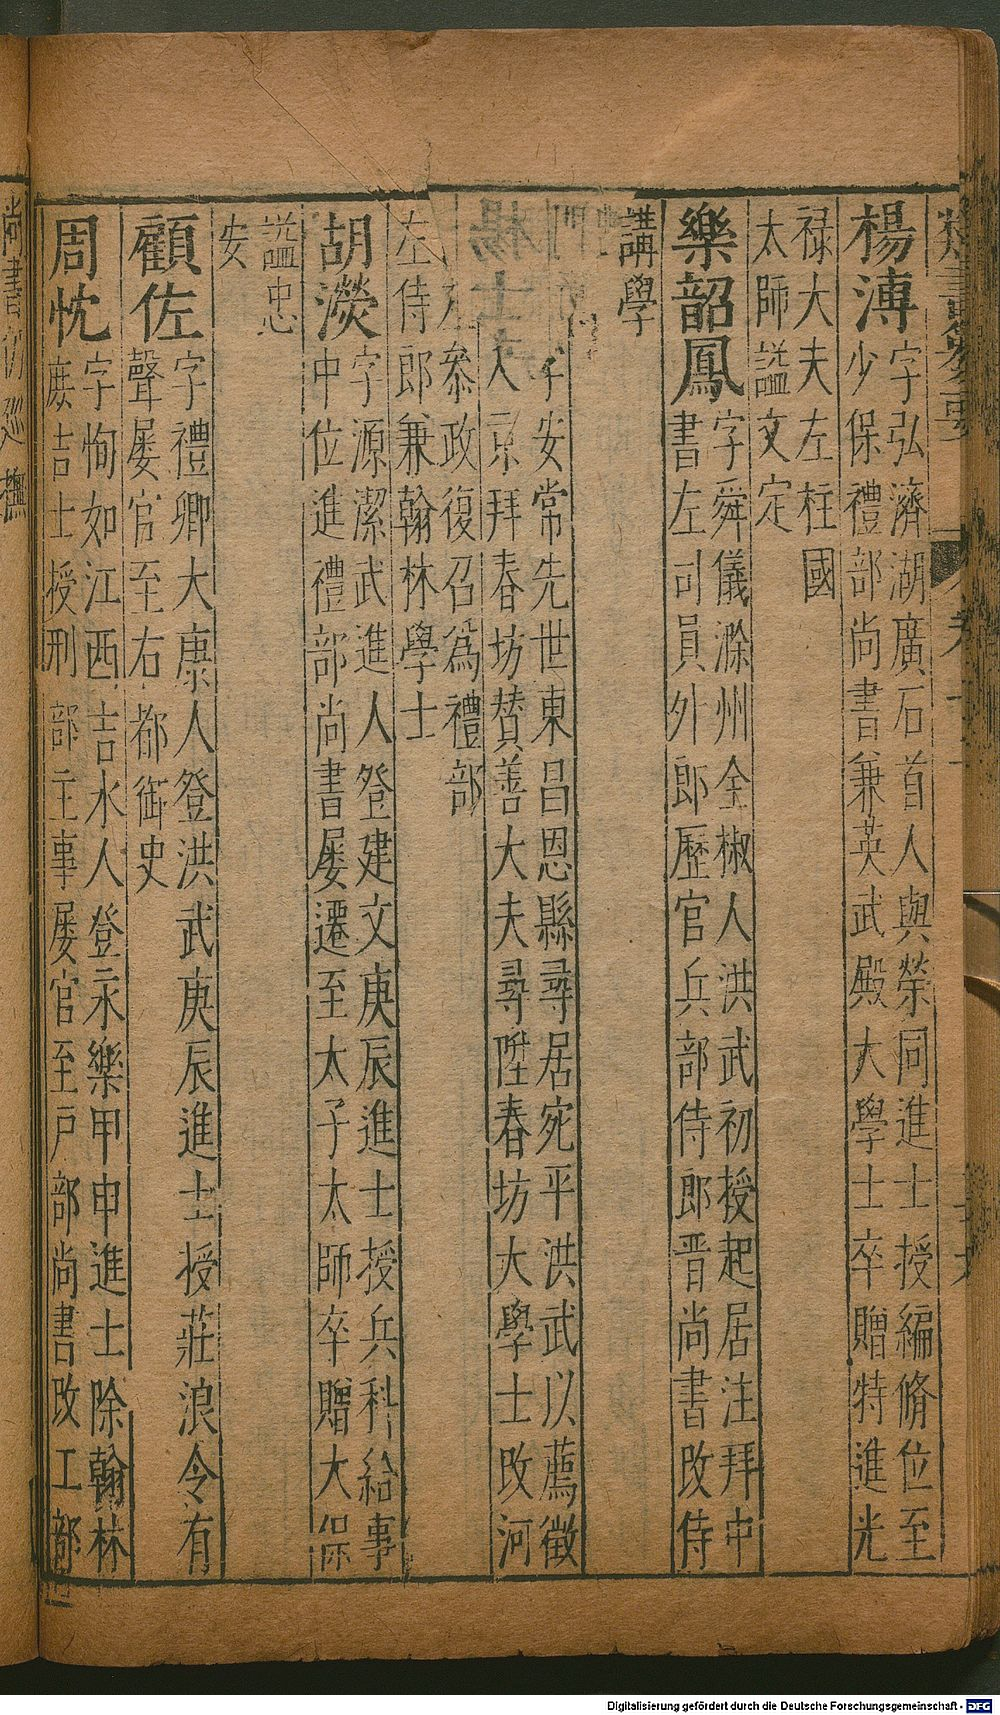 楊溥
字弘濟湖廣石首人與榮同進士授編脩位至
少保禮部尚書兼英武殿大學士卒贈特進光
禄大夫左柱國
太師諡文定
樂韶鳳
字舜儀滁州全椒人洪武初授起居注拜中
書左司員外郎歷官兵部侍郎晋尚書改侍
講學
字安常先世東昌恩縣尋居宛平洪武以薦徵
入京拜春坊賛善大夫尋陞春坊大學士改河
參政復召為禮部
左侍郎兼翰林學士
胡濙
字源潔武進人登建文庚辰進士授兵科給事
中位進禮部尚書屡遷至太子太師卒贈大保
諡忠
安
顧佐
字禮卿大康人登洪武庚辰進士授莊浪令有
聲屡官至右都御史
周忱
字恂如江西吉水人登永樂甲申進士除翰林
庶吉士授刑部主事屡官至戸部尚書改工部
尚書仍巡撫
Digitalisierung gefördert durch die Deutsche Forschungsgemeinschaft - DFG